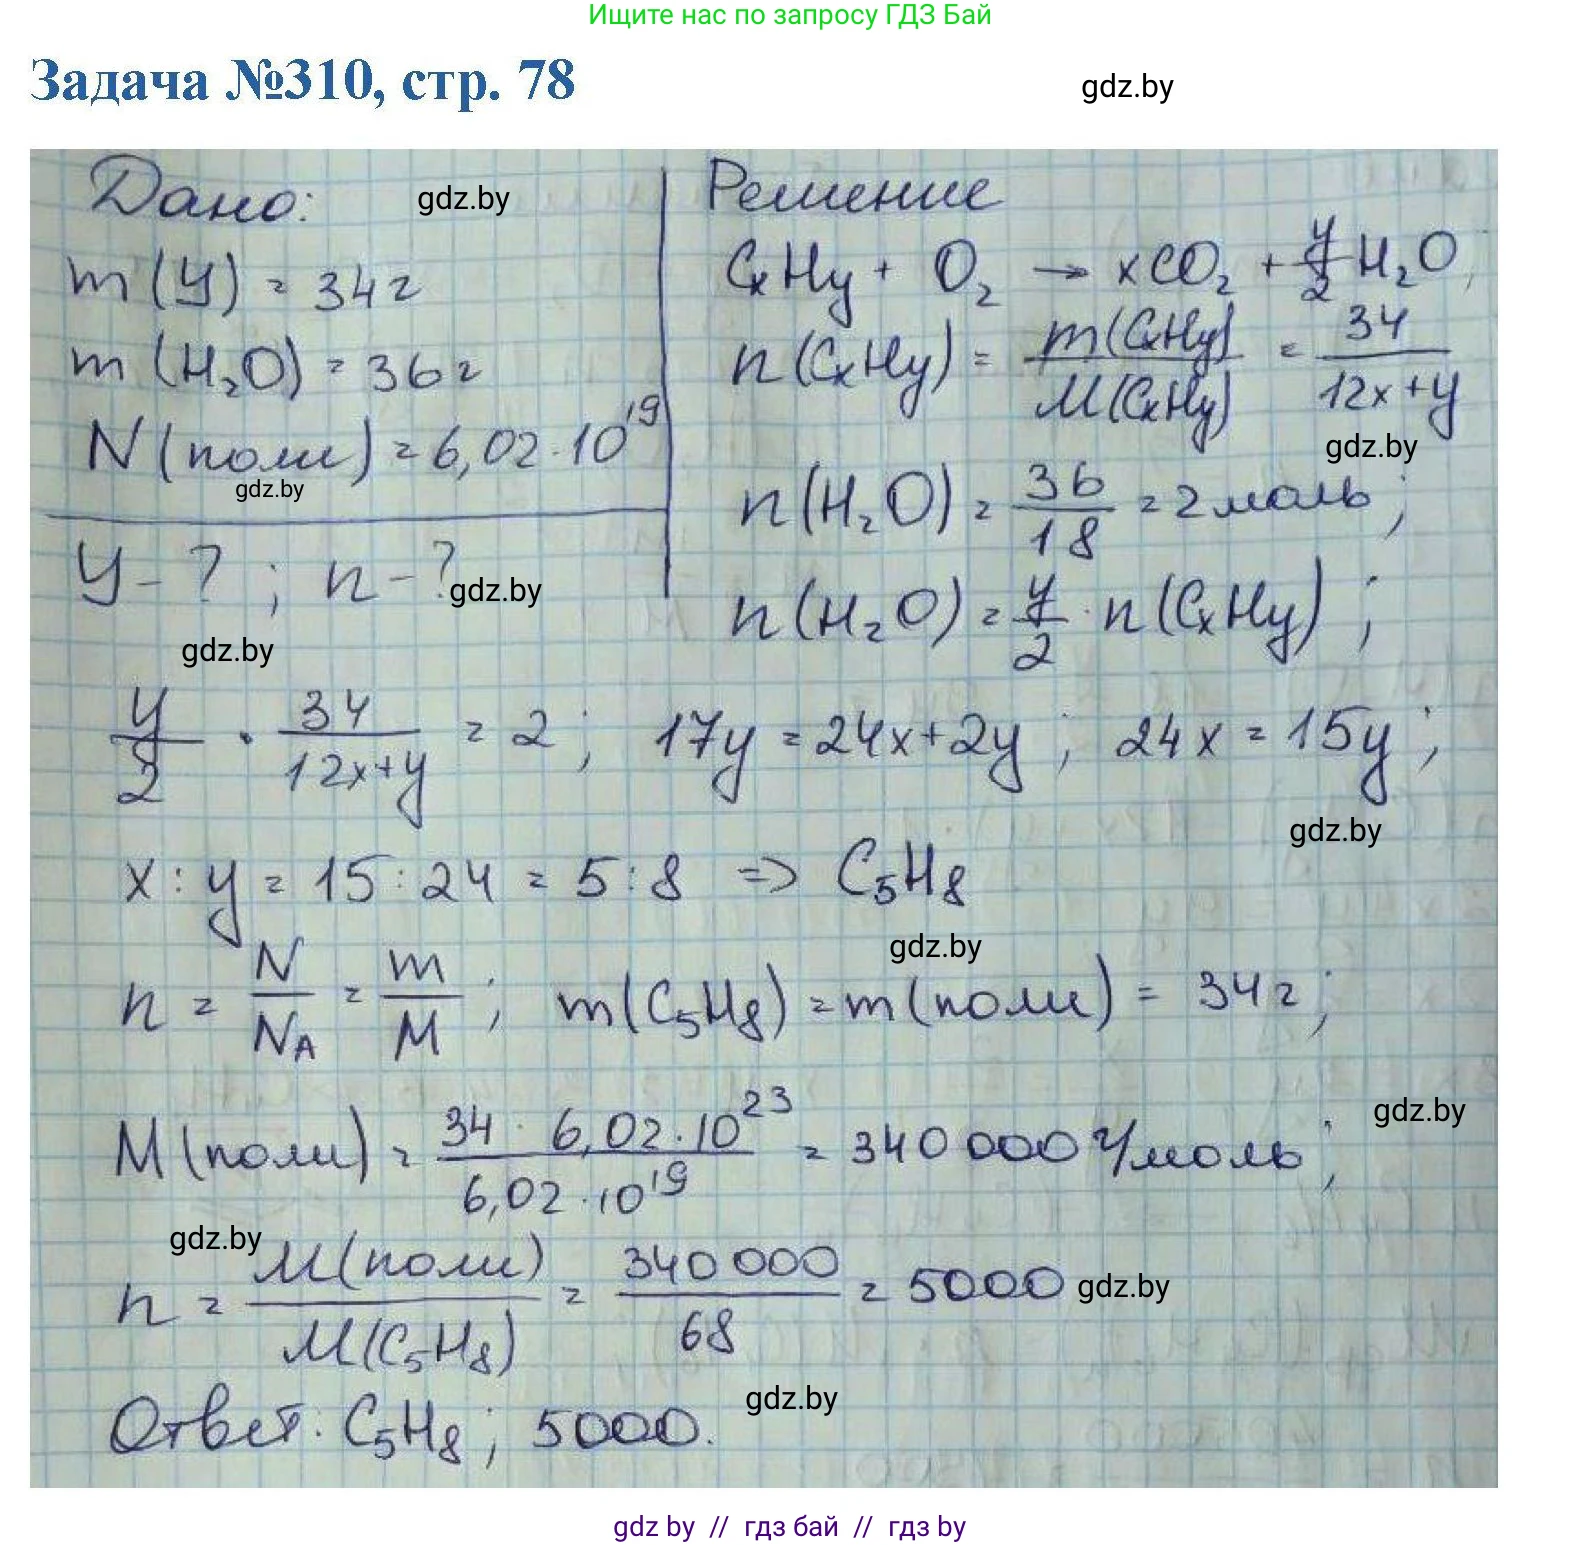 Ищите нас по запросу ГДЗ Бай
Задача №310, стр. 78
gdz.by
Дано:
gdz.by
m(У) = 34г
m(H₂O) = 36г
N(поли) = 6,02·10¹⁹
gdz.by
У-? ; n-?
gdz.by
gdz.by
Решение
CxHy + O₂ → xCO₂ + y/2 H₂O;
n(CxHy) = m(CxHy)/M(CxHy) = 34/12x+y
gdz.by
n(H₂O) = 36/18 = 2 моль;
n(H₂O) = y/2 · n(CxHy) ;
y/2 · 34/12x+y = 2; 17y = 24x+2y ; 24x = 15y ;
gdz.by
x : y = 15 : 24 = 5 : 8 => C₅H₈
gdz.by
n = N/NA = m/M ; m(C₅H₈) = m(поли) = 34г;
gdz.by
M(поли) = 34 · 6,02·10²³/6,02·10¹⁹ = 340 000 г/моль;
gdz.by
n = M(поли)/M(C₅H₈) = 340 000/68 = 5000
gdz.by
gdz.by
Ответ: C₅H₈; 5000.
gdz by // гдз бай // гдз by